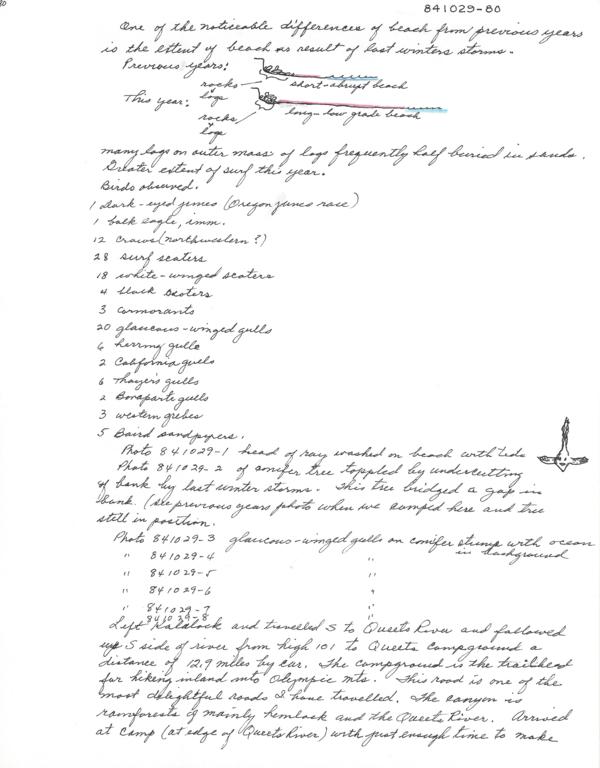 841029-80
80
One of the noticeable differences of beach from previous years
is the extent of beach as result of last winters storms.
Previous years:
rocks
logs
short-abrupt beach
This year:
rocks
logs
long-low grade beach
many logs on outer mass of logs frequently half buried in sands.
Greater extent of surf this year.
Birds observed.
1 dark-eyed junco (Oregon junco race)
1 balk eagle, imm.
12 crows (northwestern?)
28 surf scoters
18 white-winged scoters
4 black scoters
3 cormorants
20 glaucous-winged gulls
6 herring gulls
2 California gulls
6 Thayer's gulls
2 Bonaparte gulls
3 western grebes
5 Baird sandpipers.
Photo 841029-1 head of ray washed on beach with tide
Photo 841029-2 of conifer tree toppled by undercutting
of bank by last winter storms. This tree bridged a gap in
bank. (see previous years photo when we camped here and tree
still in position.
Photo 841029-3 glaucous-winged gulls on conifer stump with ocean
in background
" 841029-4 "
" 841029-5 "
" 841029-6 "
" 841029-7 "
841029-8
Left Kalalock and travelled S to Queets River and followed
up S side of river from high 101 to Queets campground a
distance of 12.9 miles by car. The campground is the trailhead
for hiking inland into Olympic Mts. This road is one of the
most delightful roads I have travelled. The canyon is
rainforests of mainly hemlock and the Queets River. Arrived
at camp (at edge of Queets River) with just enough time to make